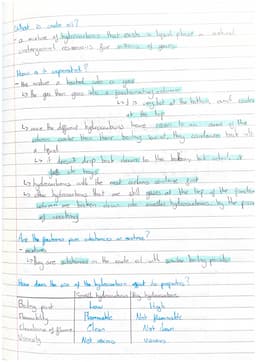 What is crude oil?
- a mixture of hydrocarbons that exists in liquid phase in natural
underground reservoirs for millions of years
How is it separated?
- the mixture is heated into a gas
↳ the gas then goes into a fractionating column
↳ it is very hot at the bottom, and cooler
at the top
↳ once the different hydrocarbons have
column cooler than their boiling point, they condense back into
a liquid
↳ it doesn't drip back down to the bottom, but instead, it
↳ hydrocarbons with the most carbons condense first
↳ the hydrocarbons that are still gases at the top of the fractionating
column are broken down into smaller hydrocarbons by the process
of cracking
Are the fractions pure substances or mixtures?
- mixtures
↳ they are substances in the crude oil with similar boiling points
How does the size of the hydrocarbon affect its properties?
Small hydrocarbons | Big hydrocarbons
Boiling point Low High
Flammability Flammable Not flammable
Cleanliness of flame Clean Not clean
Viscosity Not viscous Viscous